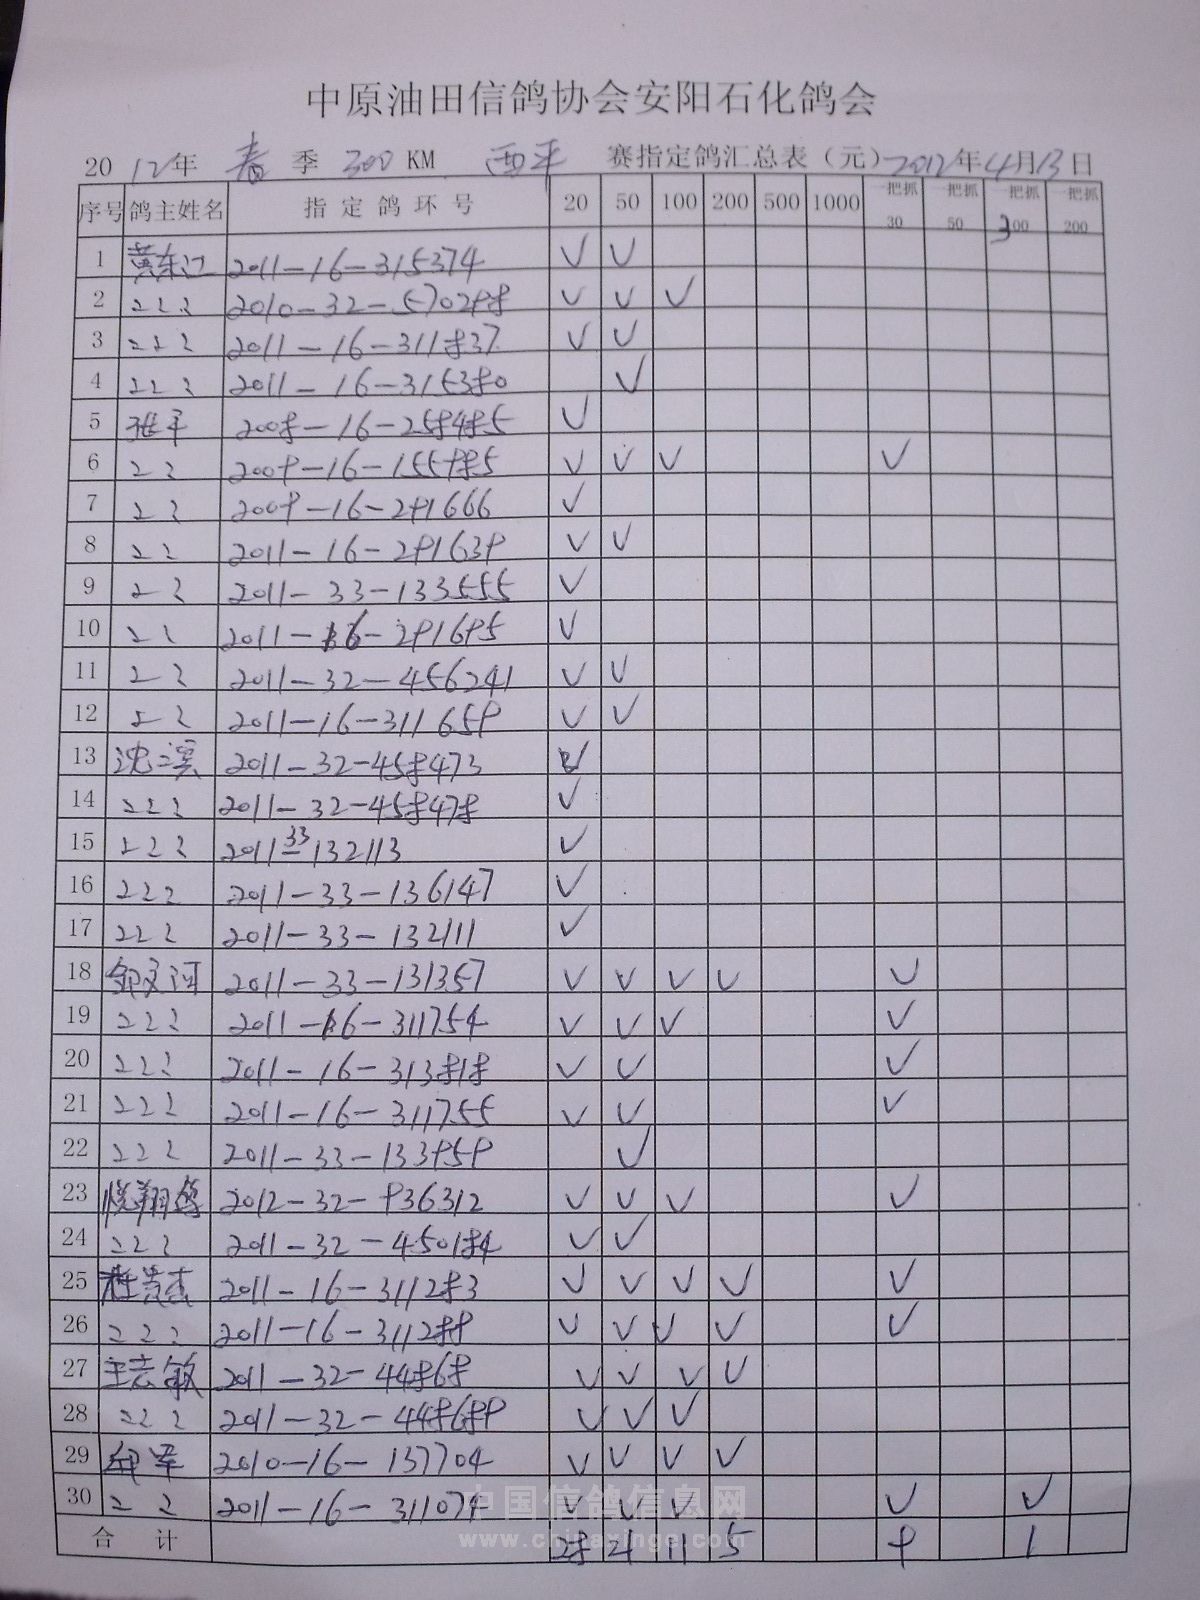 中原油田信鸽协会安阳石化鸽会
2012年 春 季 300 KM 西平 赛指定鸽汇总表（元）2012年4月13日
序号 鸽主姓名 指定鸽环号 20 50 100 200 500 1000 一把抓30 一把抓50 一把抓300 一把抓200
1 黄东江 2011-16-315374 √ √
2 〃 2010-32-570298 √ √ √
3 〃 2011-16-311837 √ √
4 〃 2011-16-315380 √
5 张平 2008-16-258485 √
6 〃 2009-16-155985 √ √ √ √
7 〃 2009-16-291666 √
8 〃 2011-16-291639 √ √
9 〃 2011-33-133555 √
10 〃 2011-16-291695 √
11 〃 2011-32-456241 √ √
12 〃 2011-16-311659 √ √
13 沈二溪 2011-32-458473 √
14 〃 2011-32-458478 √
15 〃 2011-33-132113 √
16 〃 2011-33-136147 √
17 〃 2011-33-132111 √
18 2011-33-131357 √ √ √ √ √
19 〃 2011-16-311754 √ √ √ √
20 〃 2011-16-313818 √ √ √
21 〃 2011-16-311755 √ √ √
22 〃 2011-33-133959 √
23 悦翔鸽 2012-32-936312 √ √ √ √
24 〃 2011-32-450184 √ √
25 2011-16-311283 √ √ √ √ √
26 〃 2011-16-311289 √ √ √ √ √
27 王志敏 2011-32-44868 √ √ √ √
28 〃 2011-32-448689 √ √ √
29 2010-16-137704 √ √ √ √
30 〃 2011-16-311074 √ √ √ √ √
合计 28 21 11 5 9 1
中国信鸽信息网
www.chinaxinge.com